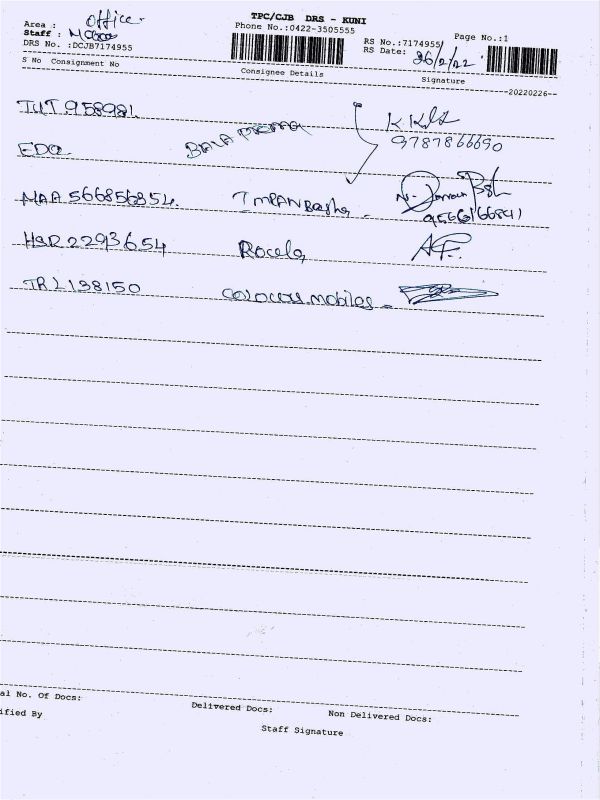 TPC/CJB DRS - KUNI
Area : Office.
Phone No.:0422-3505555
Page No.:1
Staff :
RS No.:7174955
DRS No. :DCJB7174955
RS Date: 26/2/22
S No Consignment No
Consignee Details
Signature
--20220226--
TUT 958981
EDQ
9787866690
MAA 566856854.
IMRAN Basha -
9566166841
HSR 2293654
Rocela
TRL 138150
mobiles -
al No. Of Docs:
Delivered Docs:
Non Delivered Docs:
ified By
Staff Signature